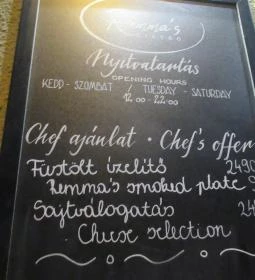 Remma's
BISTRO
Nyitvatartás
OPENING HOURS
KEDD - SZOMBAT / TUESDAY - SATURDAY
12.00 - 22.00
Chef ajánlat • Chef's offer
Füstölt ízelítő 2490
Remma's smoked plate
Sajtválogatás
Cheese selection